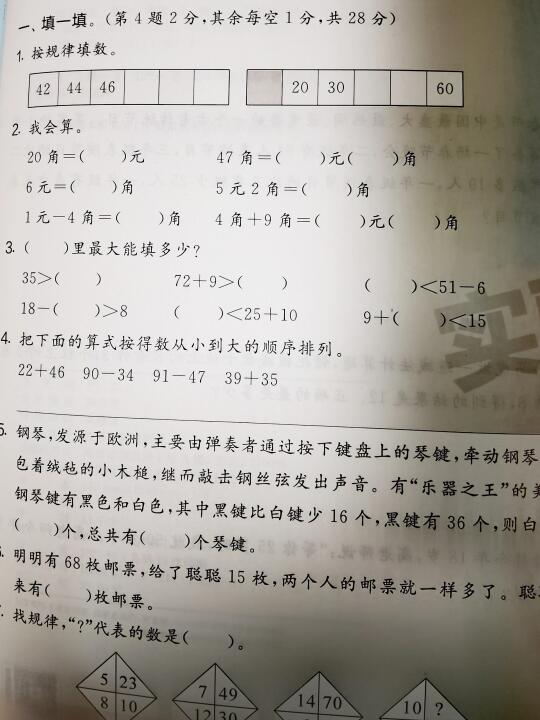 一、填一填。(第4题2分,其余每空1分,共28分)
1. 按规律填数。
42 44 46
20 30 60
2. 我会算。
20角=( )元 47角=( )元( )角
6元=( )角 5元2角=( )角
1元-4角=( )角 4角+9角=( )元( )角
3. ( )里最大能填多少?
35>( ) 72+9>( ) ( )<51-6
18-( )>8 ( )<25+10 9+( )<15
4. 把下面的算式按得数从小到大的顺序排列。
22+46 90-34 91-47 39+35
5. 钢琴,发源于欧洲,主要由弹奏者通过按下键盘上的琴键,牵动钢琴
包着绒毡的小木槌,继而敲击钢丝弦发出声音。有“乐器之王”的美
钢琴键有黑色和白色,其中黑键比白键少16个,黑键有36个,则白
( )个,总共有( )个琴键。
明明有68枚邮票,给了聪聪15枚,两个人的邮票就一样多了。聪
来有( )枚邮票。
找规律,“?”代表的数是( )。
5 23 7 49 14 70 10 ?
8 10 12 30
实